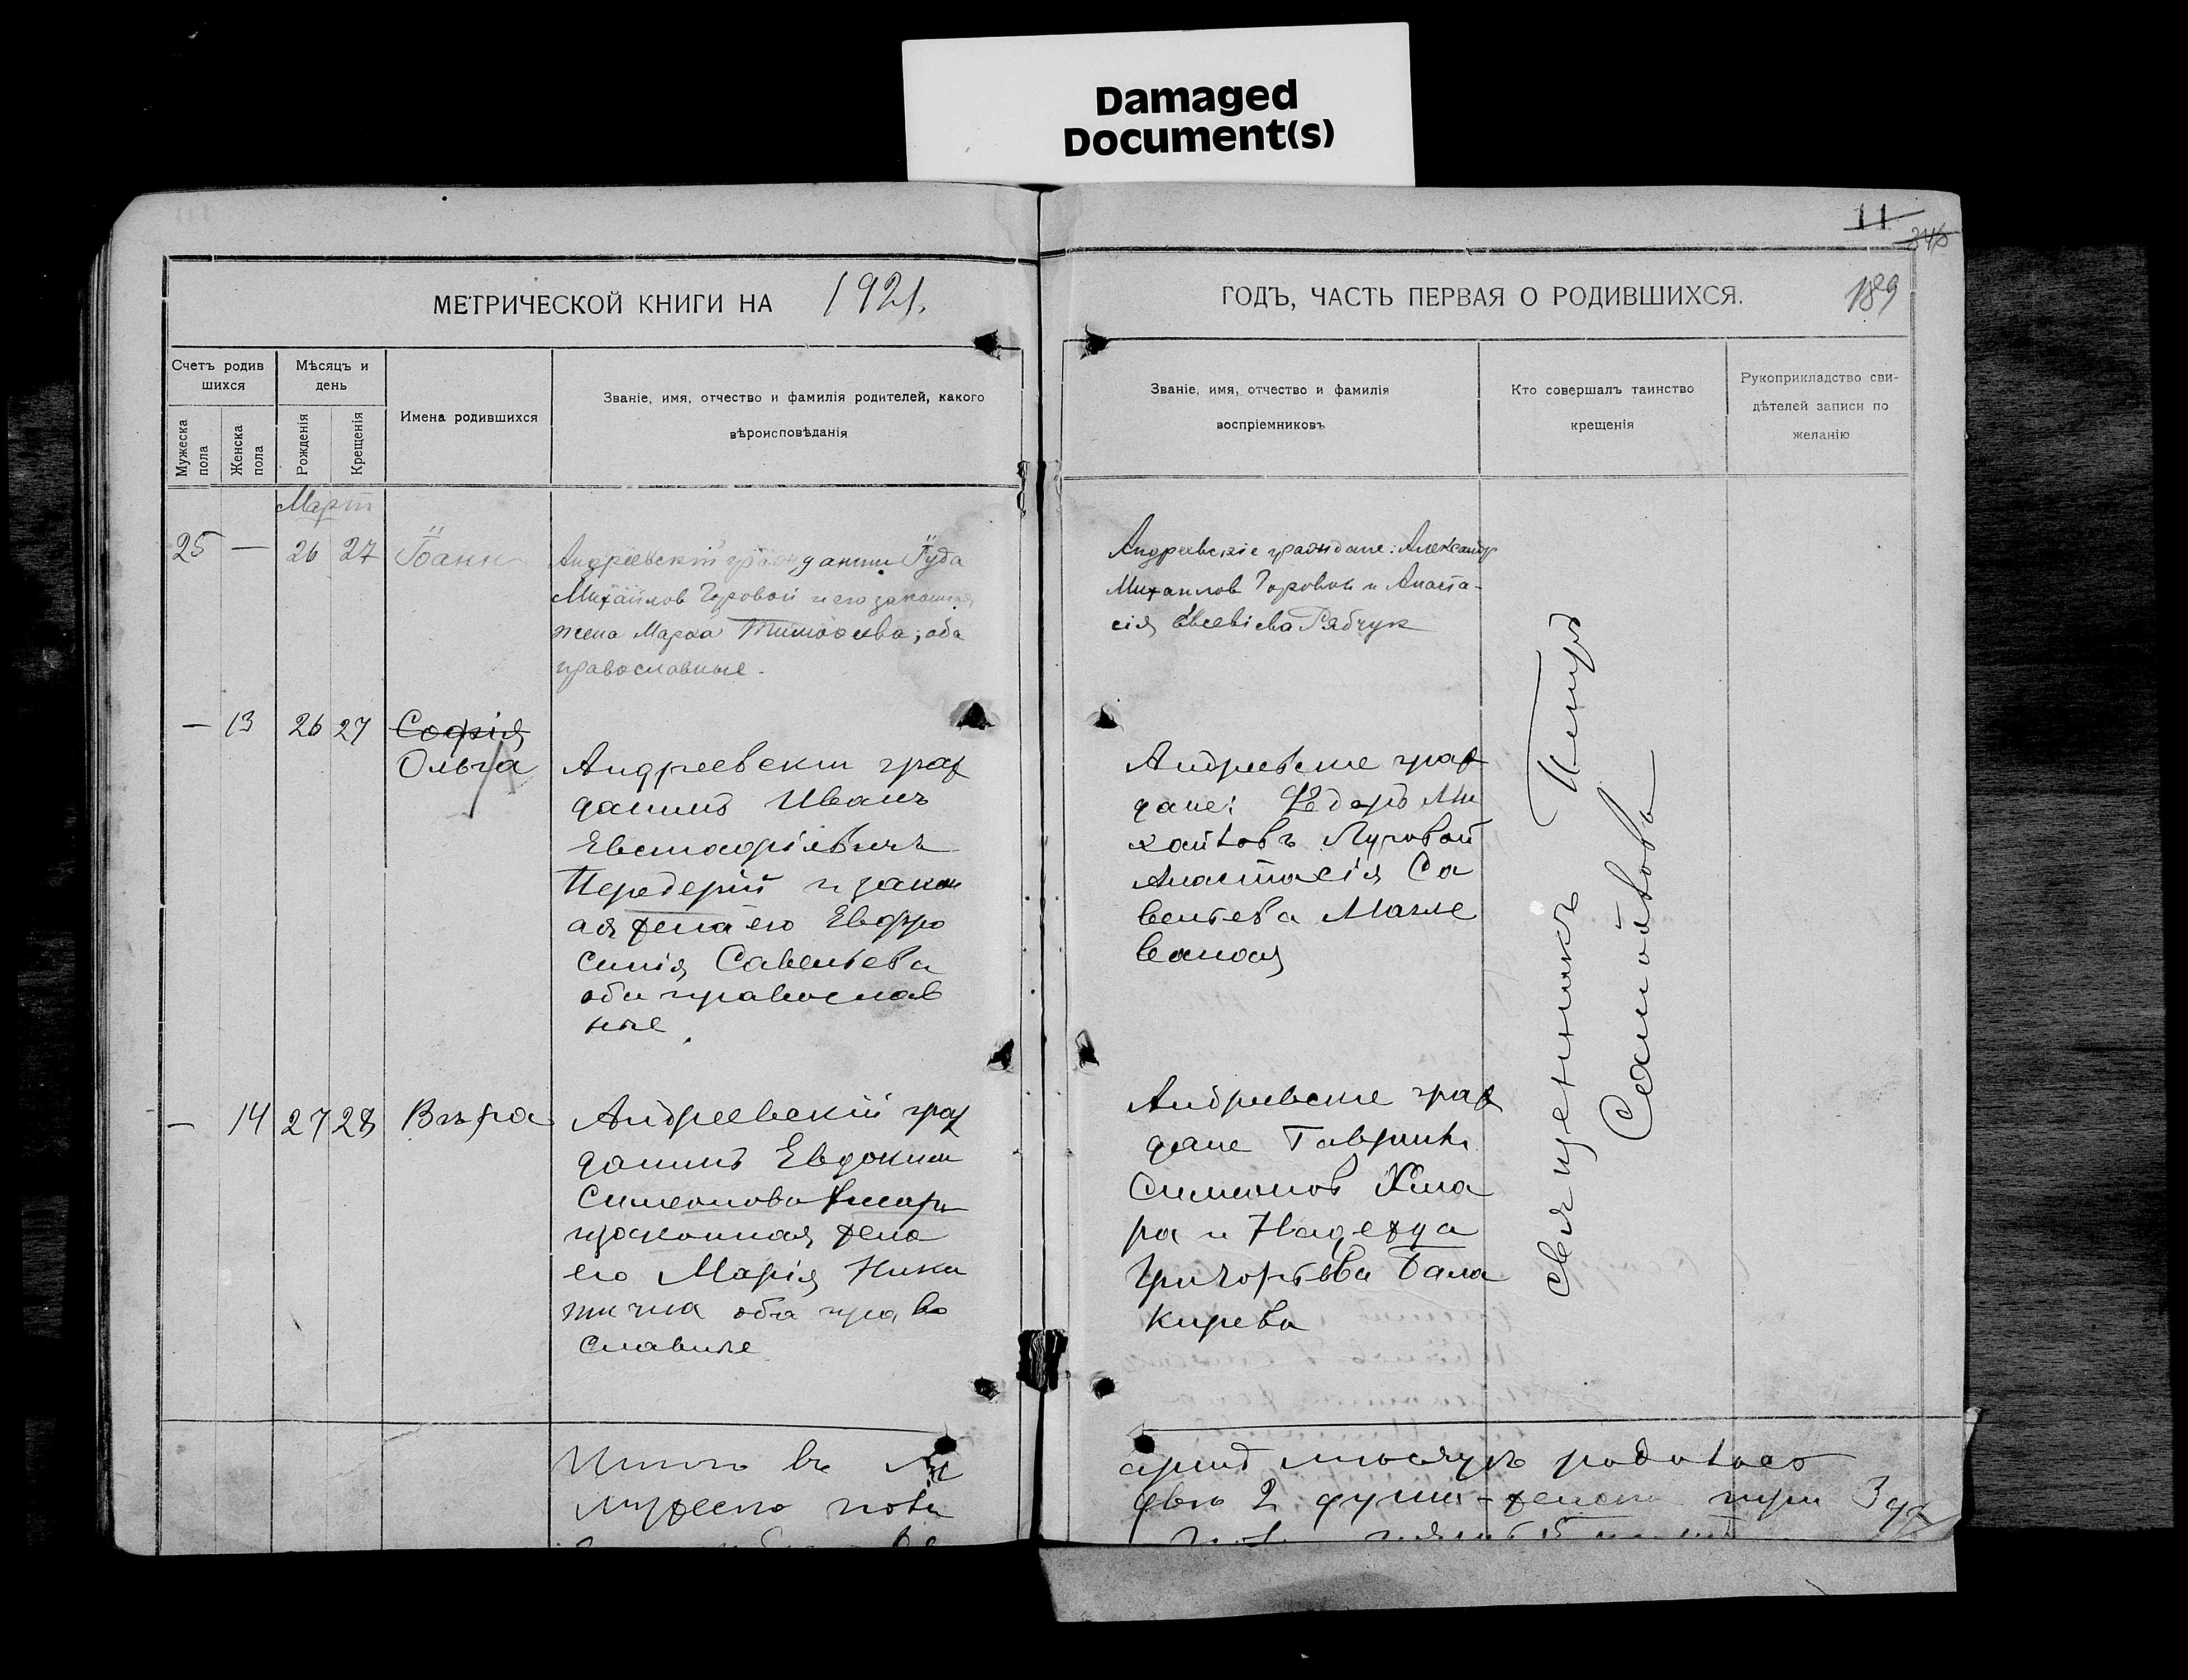 Damaged
Document(s)
11
346
189
МЕТРИЧЕСКОЙ КНИГИ НА 1921.
ГОДЪ, ЧАСТЬ ПЕРВАЯ О РОДИВШИХСЯ.
Счетъ родив
шихся
Мужеска
пола
Женска
пола
Мѣсяцъ и
день
Рожденія
Крещенія
Имена родившихся
Званіе, имя, отчество и фамилія родителей, какого
вѣроисповѣданія
Званіе, имя, отчество и фамилія
воспріемниковъ
Кто совершалъ таинство
крещенія
Рукоприкладство сви-
дѣтелей записи по
желанію
Март
25 — 26 27 Іоанн
Андреевскій гражданин Іуда
Михаилов Горовой и его законная
жена Марѳа Тимоѳеева; оба
православные.
Андреевскіе граждане: Александр
Михаилов Горовой и Анаста-
сія Евсевіева Рябчук
— 13 26 27 Софія
Ольга
Андреевски граж
данинъ Иванъ
Евстафіевичъ
Передерій и закон
ая жена его Евфро
синія Савельева
оба православ
ные.
Андревские граж
дане: Ѳедоръ Ми
хайловъ Луговой
Анастасія Са
вельева
— 14 27 28 Вѣра
Андреевскій граж
данинъ Евдоким
Симеонова
и законная жена
его Марія Ники
тична оба право
славные
Андревские граж
дане Гавриилъ
Симионов Хма
ра и Надежда
Григорьева Бала
кирева
священникъ Петръ
Самойловъ
Итого въ М
арте месяцъ родилось
мужеска пола
двѣ 2 души - женска три 3 ду